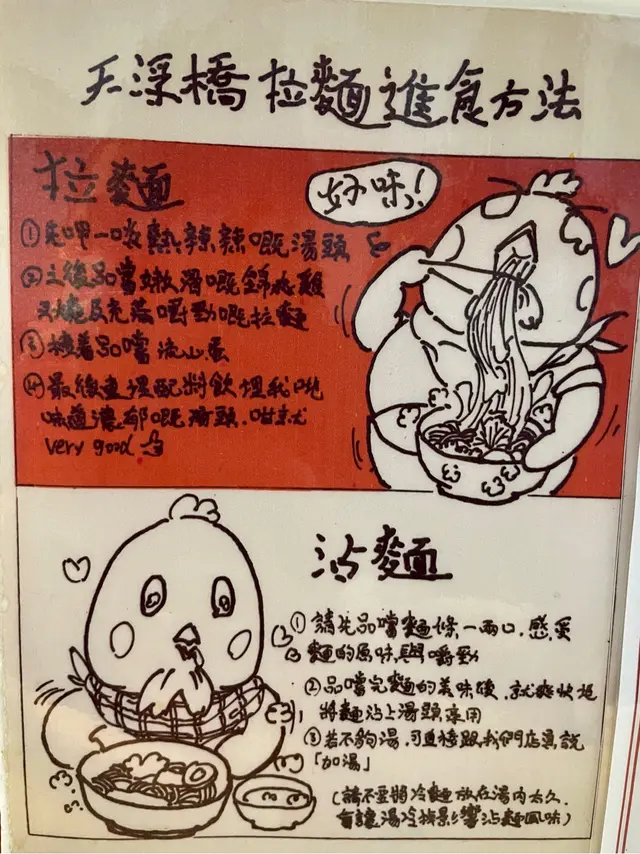 天深橋 拉麵進食方法
拉麵
好味!
①先呷一啖熱辣辣嘅湯頭
②之後品嚐嫩滑嘅雞
叉燒及充滿嚼勁嘅拉麵
③接着品嚐流心蛋
④最後連埋配料飲埋我哋
味道濃郁嘅湯頭,咁就
very good
沾麵
①請先品嚐麵條一兩口,感受
麵的原味與嚼勁
②品嚐完麵的美味後,就爽快地
將麵沾上湯頭享用
③若不夠湯,可直接跟我們店員說
「加湯」
(請不要將冷麵放在湯內太久,
會讓湯冷掉影響沾麵風味)